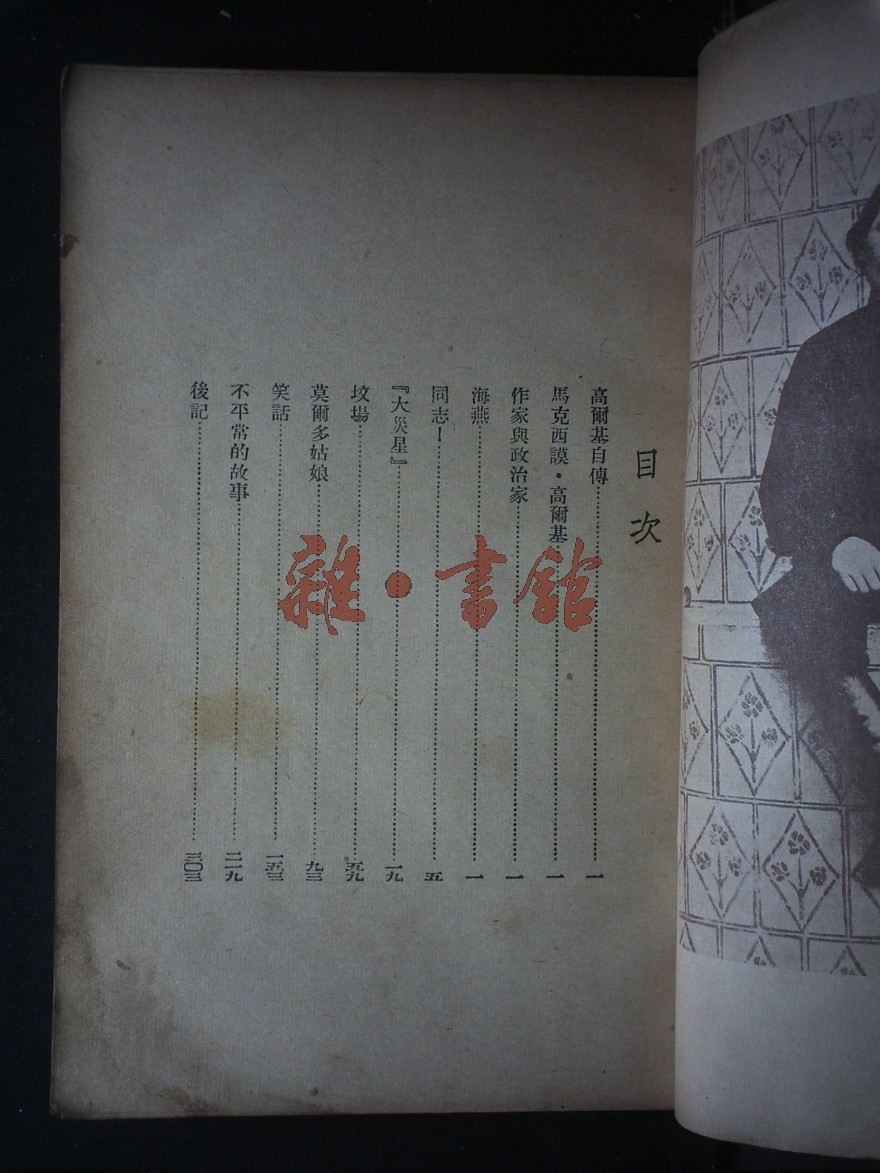 目次
高爾基自傳……一
馬克西謨·高爾基……一
作家與政治家……一
海燕……一
同志！……五
『大災星』……一九
坟場……五九
莫爾多姑娘……九三
笑話……一五三
不平常的故事……二一九
後記……三〇三
雜·書館